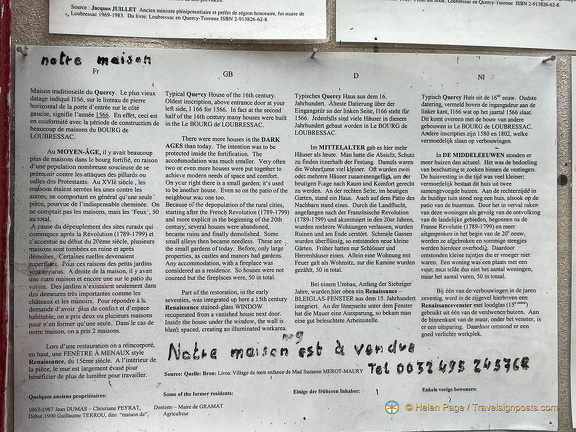 Source : Jacques JUILLET Ancien ministre plénipotentiaire et préfet de région honoraire, fut maire de
Loubressac 1969-1983. Du livre: Loubressac en Quercy-Turenne ISBN 2-913826-62-8.
notre maison
Fr
Maison traditionnelle du Quercy. Le plus vieux
datage indiqué I166, sur le linteau de pierre
horizontal de la porte d'entrée sur le côté
gauche, signifie l'année 1566. En effet, ceci est
en conformité avec la période de construction de
beaucoup de maisons du BOURG de
LOUBRESSAC.
Au MOYEN-ÂGE, il y avait beaucoup
plus de maisons dans le bourg fortifié, en raison
d'une population nombreuse soucieuse de se
prémunir contre les attaques des pillards ou
celles des Protestants. Au XVIè siècle, les
maisons étaient serrées les unes contre les
autres, ne comportant en général qu'une seule
pièce, pourvue de l'indispensable cheminée. On
ne comptait pas les maisons, mais les 'Feux', 50
au total.
A cause du dépeuplement des sites ruraux qui
commence après la Révolution (1789-1799) et
s'accentue au début du 20ème siècle, plusieurs
maisons sont tombées en ruine et après
démolies. Certaines ruelles devenaient
superflues. Pour ces raisons des petits jardins
apparus. A droite de la maison, il y avait
une autre maison et encore une sur le patio du
voisin. Des jardins n'existaient seulement dans
des demeures très importantes comme les
châteaux et les manoirs. Pour répondre à la
demande d'avoir plus de confort et d'espace
habitable, on a pris deux ou plusieurs maisons
pour n'en former qu'une seule. Dans le cas de
notre maison, on a pris 2 maisons.
Lors d'une restauration on a réincorporé,
en haut, une FENÊTRE À MENAUX style
Renaissance, du 15ième siècle. A l'intérieure de
la pièce, le mur est largement évasé pour
bénéficier de plus de lumière pour travailler.
Quelques anciens propriétaires:
1963-1987 Jean DUMAS – Christiane PEYRAT,
Début 1900 Guillaume TERROU, dite "maison de",
GB
Typical Quercy House of the 16th century.
Oldest inscription, above entrance door at your
left side, I 166 for 1566. In fact at the second
half of the 16th century many houses were built
in the Le BOURG de LOUBRESSAC.
There were more houses in the DARK
AGES than today. The intention was to be
protected inside the fortification. The
accommodation was much smaller. Very often
two or even more houses were put together to
achieve modern needs of space and comfort.
On your right there is a small garden; it's used
to be another house. Even so on the patio of the
neighbour was one too.
Because of the depopulation of the rural cities,
starting after the French Revolution (1789-1799)
and more explicit in the beginning of the 20th
century, several houses were abandoned,
became ruins and finally demolished. Some
small alleys then became needless. These are ,
the small gardens of today. Before, only large
properties, as castles and manors had gardens.
Any accommodation, with a fireplace was
considered as a residence. So houses were not
counted but the fireplaces were, 50 in total.
Part of the restoration, in the early
seventies, was integrated up here a 15th century
Renaissance stained-glass WINDOW
recuperated from a vanished house next door.
Inside the house under the window, the wall is
blant spaced, creating an illuminary workarea.
Some of the former residents:
Dentiste – Maire de GRAMAT
Agriculteur
D
Typisches Quercy Haus aus dem 16.
Jahrhundert. Älteste Datierung über der
Eingangstür an der linken Seite, I166 steht für
1566. Jedenfalls sind viele Häuser in diesem
Jahrhundert gebaut worden in Le BOURG de
LOUBRESSAC.
Im MITTELALTER gab es hier mehr
Häuser als heute. Man hatte die Absicht, Schutz
zu finden innerhalb der Festung. Damals waren
die Wohnräume viel kleiner. Oft wurden zwei
oder mehrere Häuser zusammengefügt, um der
heutigen Frage nach Raum und Komfort gerecht
zu werden. An der rechten Seite, im heutigen
Garten, stand ein Haus. Auch auf dem Patio des
Nachbarn stand eines. Durch die Landflucht,
angefangen nach der Französische Revolution
(1789-1799) und akzentuiert in den 20er Jahren,
wurden mehrere Wohnungen verlassen, wurden
Ruinen und am Ende zerstört. Schmale Gassen
wurden überflüssig, so entstanden neue kleine
Gärten. Früher hatten nur Schlösser und
Herrenhäuser einen. Allein eine Wohnung mit
Feuer galt als Wohnsitz, nur die Kamine wurden
gezählt, 50 in total.
Bei einem Umbau, Anfang der Siebziger
Jahre, wurden hier oben ein Renaissance –
BLEIGLAS-FENSTER aus dem 15. Jahrhundert
integriert. An der Innenseite unter dem Fenster
hat die Mauer eine Aussparung, so bekam man
eine gut beleuchtete Arbeitsstelle.
Einige der früheren Inhaber:
Nl
Typisch Quercy Huis uit de 16de eeuw. Oudste
datering, vermeld boven de ingangsdeur aan de
linker kant, I166 wat op het jaartal 1566 slaat.
Dit komt overeen met de bouw van andere
gebouwen in Le BOURG de LOUBRESSAC.
Andere inscripties zijn 1580 en 1802, welke
vermoedelijk slaan op verbouwingen.
In DE MIDDELEEUWEN stonden er
meer huizen dan actueel. Het was de bedoeling
van beschutting te zoeken binnen de vestingen.
De huisvesting in die tijd was veel kleiner;
vermoedelijk bestaat dit huis uit twee
samengevoegde huizen. Aan de rechterzijde in
de huidige tuin stond nog een huis, alsook op de
patio van de buurman. Door het in verval raken
van deze woningen als gevolg van de ontvolking
van de landelijke gebieden, begonnen na de
Franse Revolutie (1789-1799) en meer
uitgesproken in het begin van de 20ste eeuw,
werden ze afgebroken en sommige steegjes
werden hierdoor overbodig. Daardoor
ontstonden kleine tuintjes die er vroeger niet
waren. Een woning was een plaats met een
vuur; men telde dus niet het aantal woningen,
maar het aantal vuren, 50 in totaal.
Bij één van de verbouwingen, in de jaren
zeventig, werd in de zijgevel hierboven een
Renaissancevenster met loodglas (15de eeuw)
gebruikt uit één van de verdwenen huizen. Aan
de binnenkant van de muur, onder het venster, is
er een uitsparing. Daardoor ontstond er een
goed verlichte werkplek.
Enkele vorige bewoners:
Notre maison est à vendre
Tel 0032 495 245768
Source: Quelle: Bron: Livre: Village de mon enfance de Mad Suzanne MEROT-MAURY
© Helen Page / Travelsignposts.com